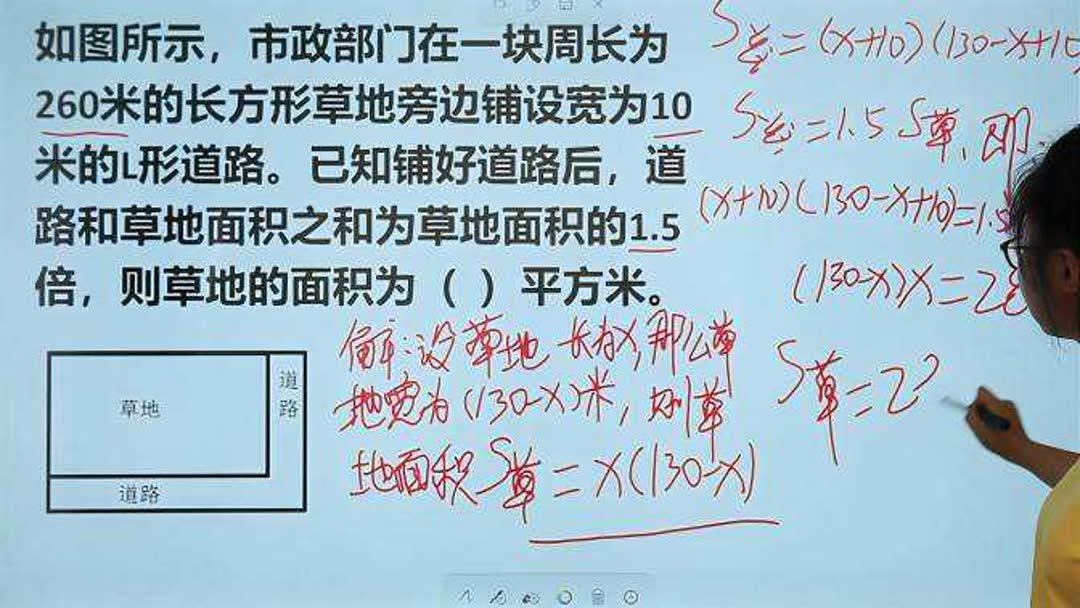 如图所示，市政部门在一块周长为
260米的长方形草地旁边铺设宽为10
米的L形道路。已知铺好道路后，道
路和草地面积之和为草地面积的1.5
倍，则草地的面积为（ ）平方米。
草地
道
路
道路
S总=(x+10)(130-x+10
S总=1.5S草，即
(x+10)(130-x+10)=1.5
(130-x)x=28
S草=2
解：设草地长为x，那么草
地宽为(130-x)米，则草
地面积S草=x(130-x)